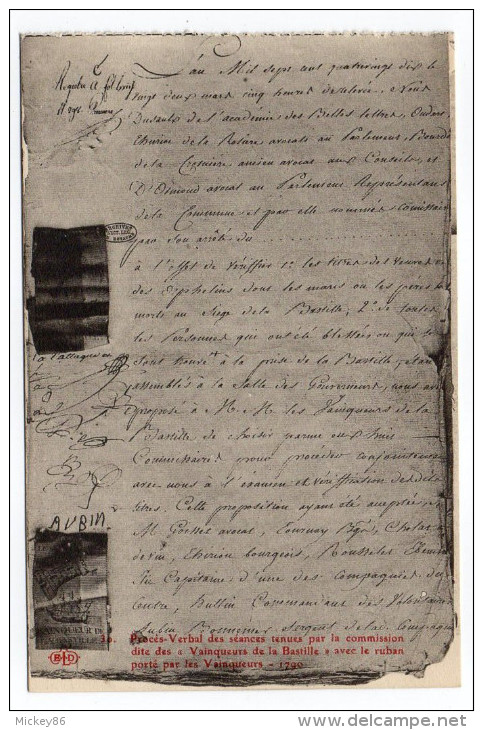 L'an Mil sept cent quatrevingt dix le
vingt deux mars cinq heures de relevée, Nous
Dusaulx de l'academie des Belles lettres, Oudart
Thirion de la Rosiere avocats au Parlement, Bourdon
de la Crosniere ancien avocat aux Conseils, et
D'Osmond avocat au Parlement Représentans
de la Commune et par elle nommés Commissaires
par son arrêté du
à l'effet de vérifier 1º les titres des veuves et
des orphelins dont les maris ou les peres
morts au Siege de la Bastille, 2º de toutes
les Personnes qui ont été blessées ou qui se
sont trouvés à la prise de la Bastille, étant
assemblés à la Salle des Gouverneurs, nous avons
proposé à M.M. les Vainqueurs de la
Bastille de choisir parmi eux huit
Commissaires pour proceder conjointement
avec nous à l'examen et vérification des dits
titres. Cette proposition ayant été acceptée,
M Gosset avocat, Tournay, Cholat
de vin, Thirion bourgeois, Rousselet
Capitaine d'une des Compagnies du
Centre, Hullin Commandant des Volontaires
Aubin Bonnemer, Sergent de la Compagnie
ARCHIVES
à l'attaque
AUBIN
VAINQUEUR DE
30. Procès-Verbal des séances tenues par la commission
dite des « Vainqueurs de la Bastille » avec le ruban
porté par les Vainqueurs - 1790
E L D
Mickey86
www.delcampe.net